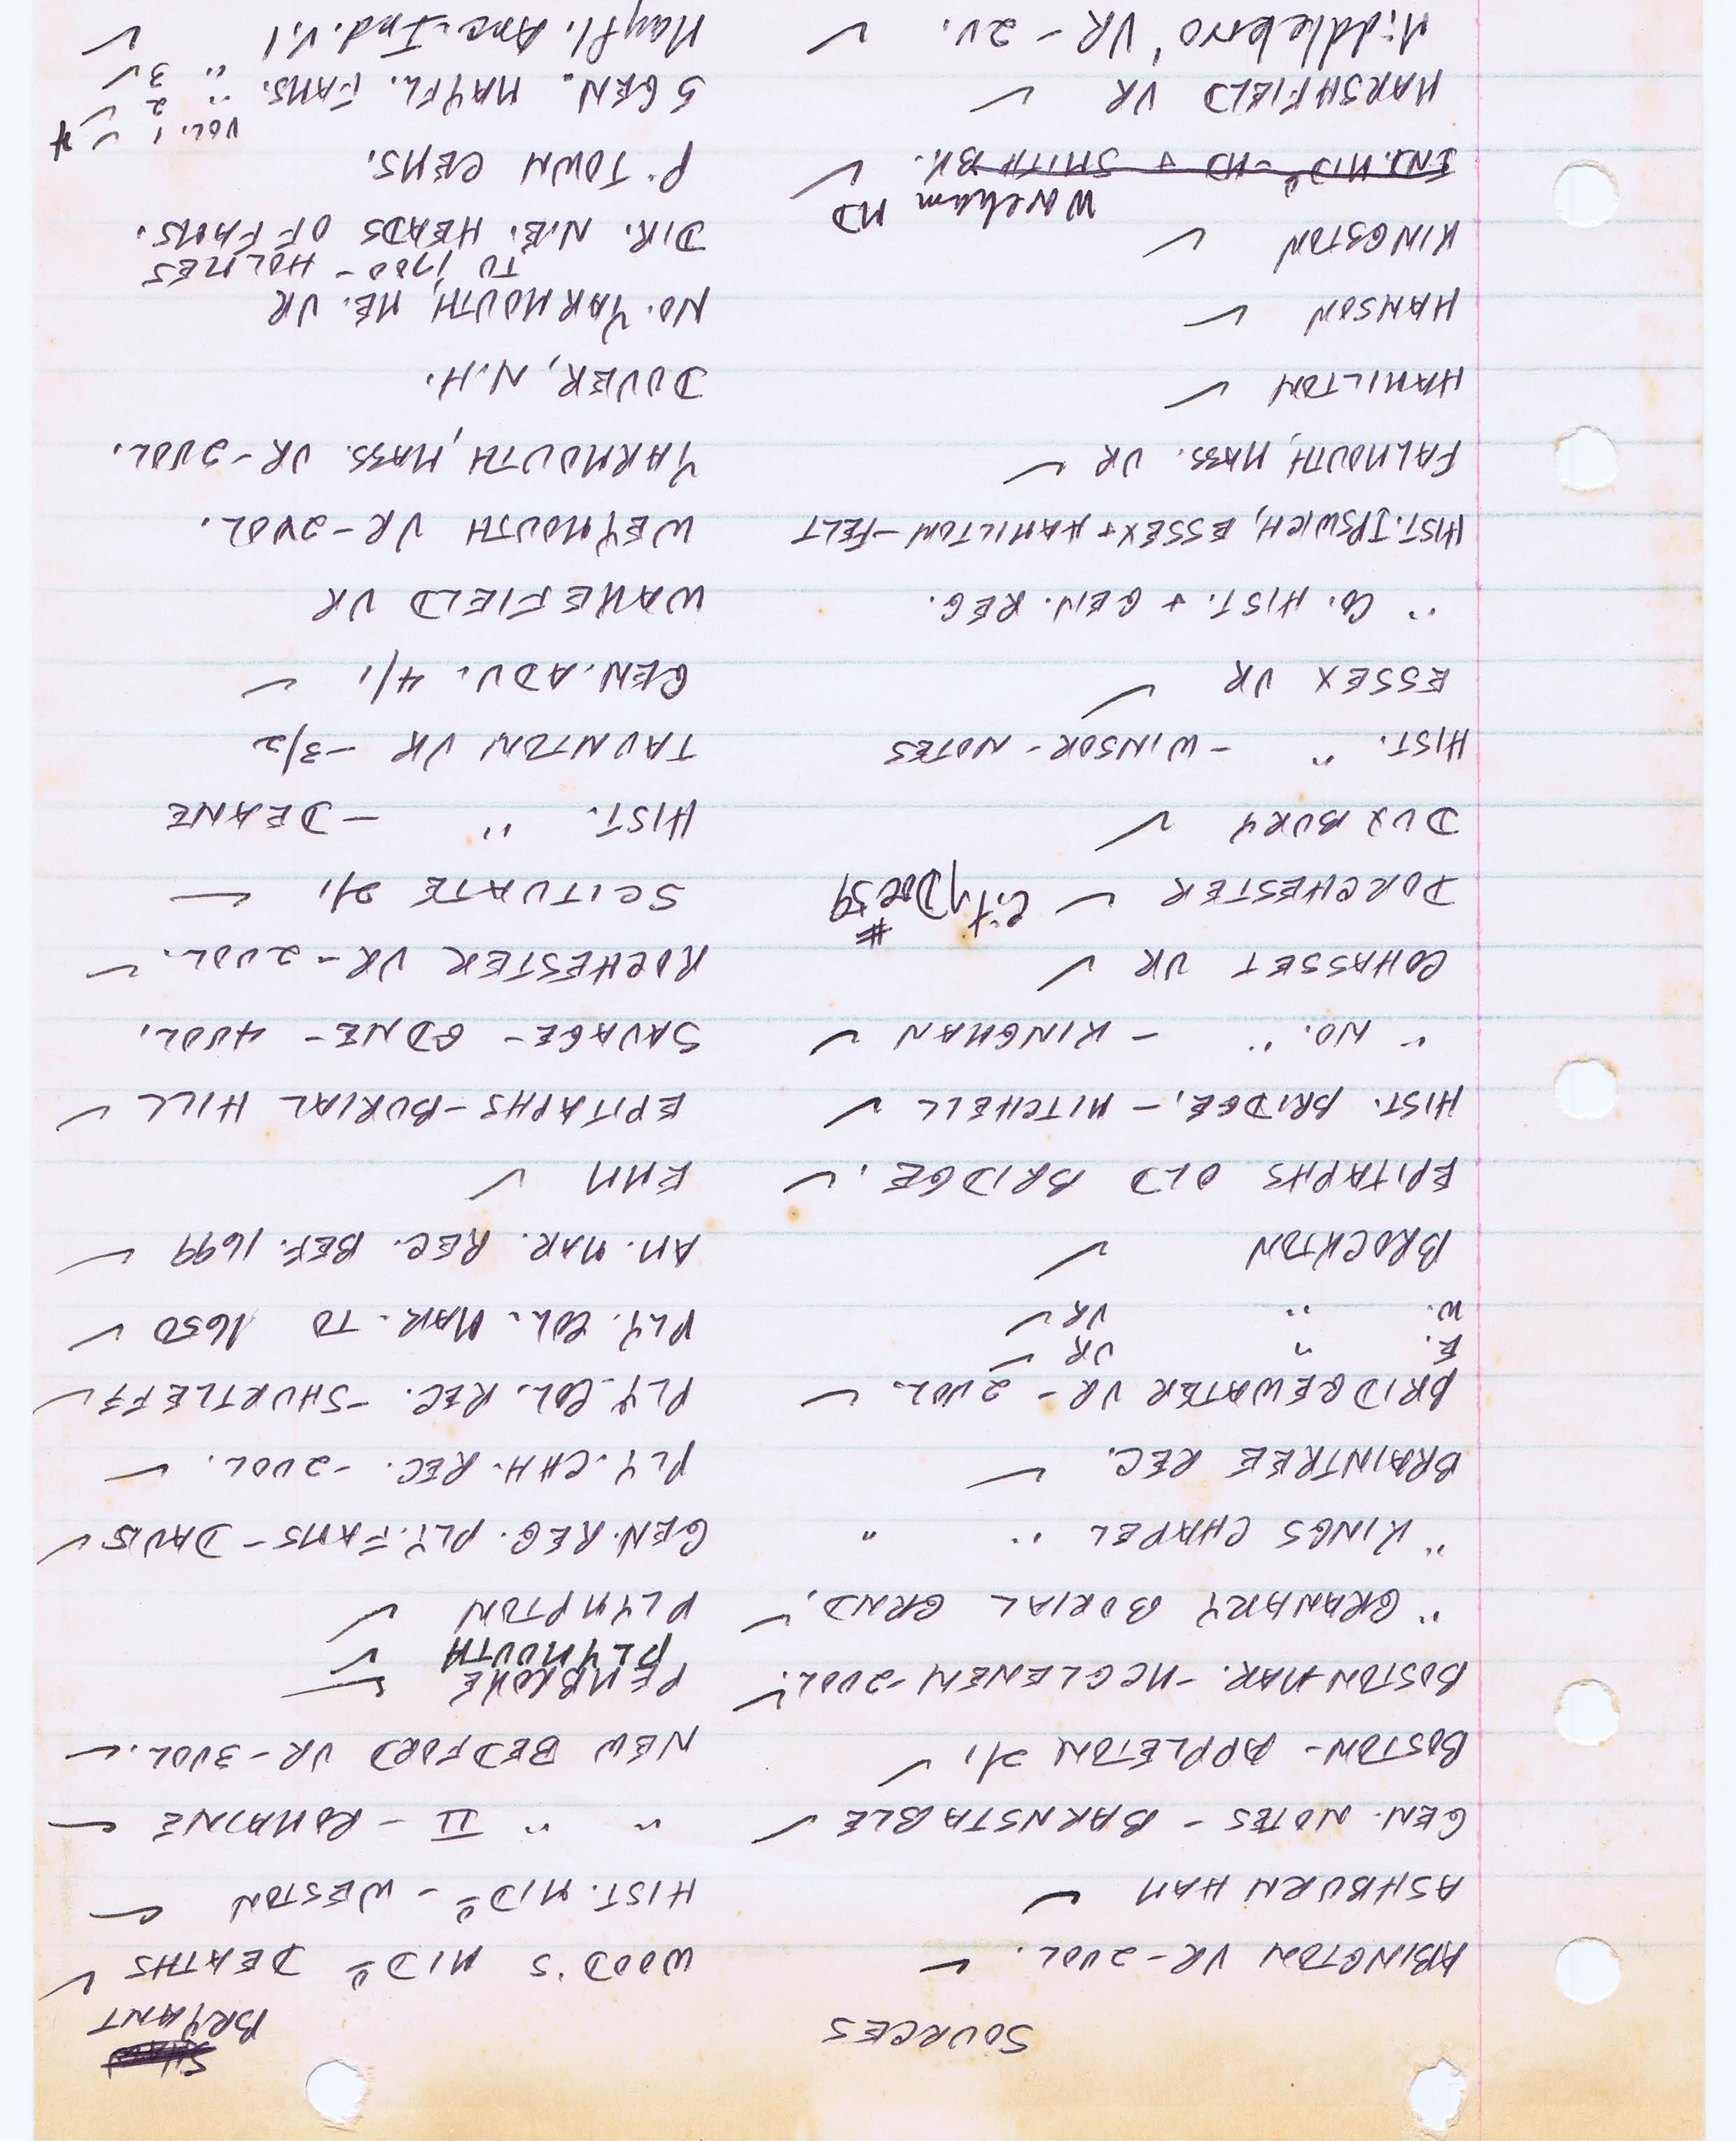 SOURCES
BRYANT
ABINGTON VR-2VOL.
ASHBURNHAM
GEN. NOTES - BARNSTABLE
BOSTON - APPLETON 2/1
BOSTON MAR. - MCGLENEN-2VOL.
" GRANARY BURIAL GRND.
" KINGS CHAPEL " "
BRAINTREE REC.
BRIDGEWATER VR - 2VOL.
E. " VR
W. " VR
BROCKTON
EPITAPHS OLD BRIDGE.
HIST. BRIDGE. - MITCHELL
" NO. " - KINGMAN
COHASSET VR
DORCHESTER City Doc #59
DUXBURY
HIST. " - WINSOR - NOTES
ESSEX VR
" CO. HIST. + GEN. REG.
HIST. IPSWICH, ESSEX + HAMILTON - FELT
FALMOUTH, MASS. VR
HAMILTON
HANSON
KINGSTON
Wareham MD
IND. MIDo - MD + SMITH BK.
MARSHFIELD VR
Middleboro' VR - 2v.
WOOD'S MIDo DEATHS
HIST. MIDo - WESTON
" " II - ROMAINE
NEW BEDFORD VR-3VOL.
PEMBROKE
PLYMOUTH
PLYMPTON
GEN. REG. PLY. FAMS - DAVIS
PLY. CHH. REC. - 2VOL.
PLY. COL. REC. - SHURTLEFF
PLY. COL. MAR. TO 1650
AM. MAR. REC. BEF. 1699
EMM
EPITAPHS - BURIAL HILL
SAVAGE - GDNE - 4VOL.
ROCHESTER VR - 2VOL.
SCITUATE 2/1
HIST. " - DEANE
TAUNTON VR - 3/2
GEN. ADV. 4/1
WAKEFIELD VR
WEYMOUTH VR-2VOL.
YARMOUTH, MASS. VR-2VOL.
DOVER, N.H.
NO. YARMOUTH, ME. VR
TO 1700 - HOLMES
DIR. N.E. HEADS OF FAMS.
P'TOWN CEMS.
VOL. 1 4
5 GEN. MAYFL. FAMS. " 2
" 3
Mayfl. Anc-Ind. V.1